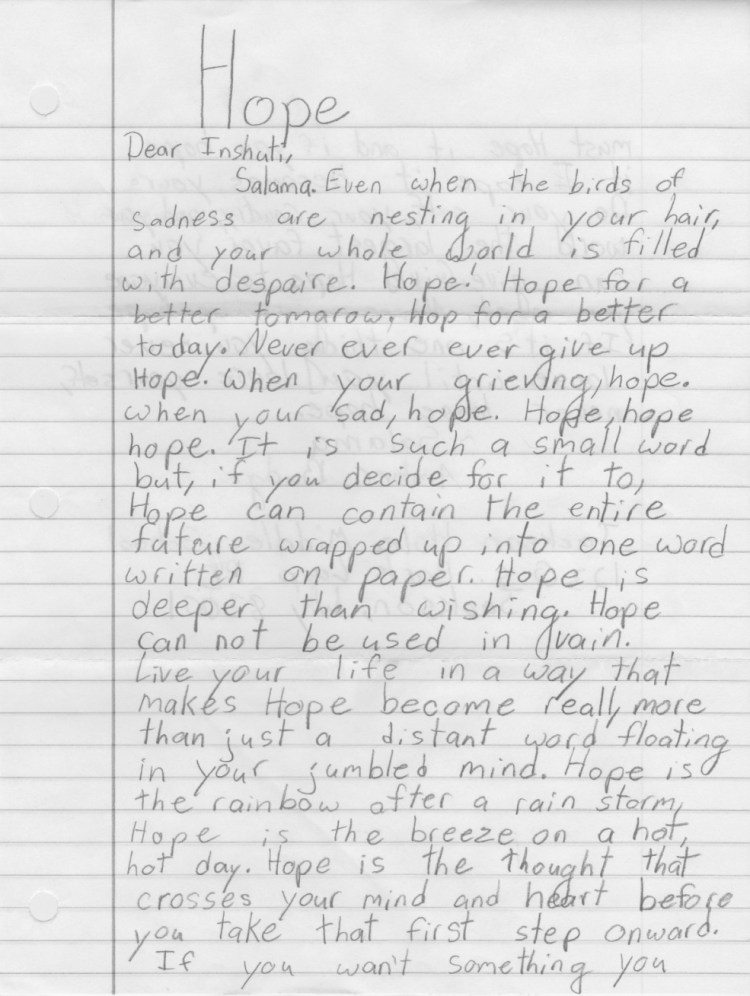 Hope
Dear Inshuti,
Salama. Even when the birds of
sadness are nesting in your hair,
and your whole world is filled
with despaire. Hope! Hope for a
better tomarow. Hop for a better
today. Never ever ever give up
Hope. When your grieving, hope.
when your sad, hope. Hope, hope
hope. It is such a small word
but, if you decide for it to,
Hope can contain the entire
future wrapped up into one word
written on paper. Hope is
deeper than wishing. Hope
can not be used in vain.
Live your life in a way that
makes Hope become real, more
than just a distant word floating
in your jumbled mind. Hope is
the rainbow after a rain storm,
Hope is the breeze on a hot,
hot day. Hope is the thought that
crosses your mind and heart before
you take that first step onward.
If you wan't something you